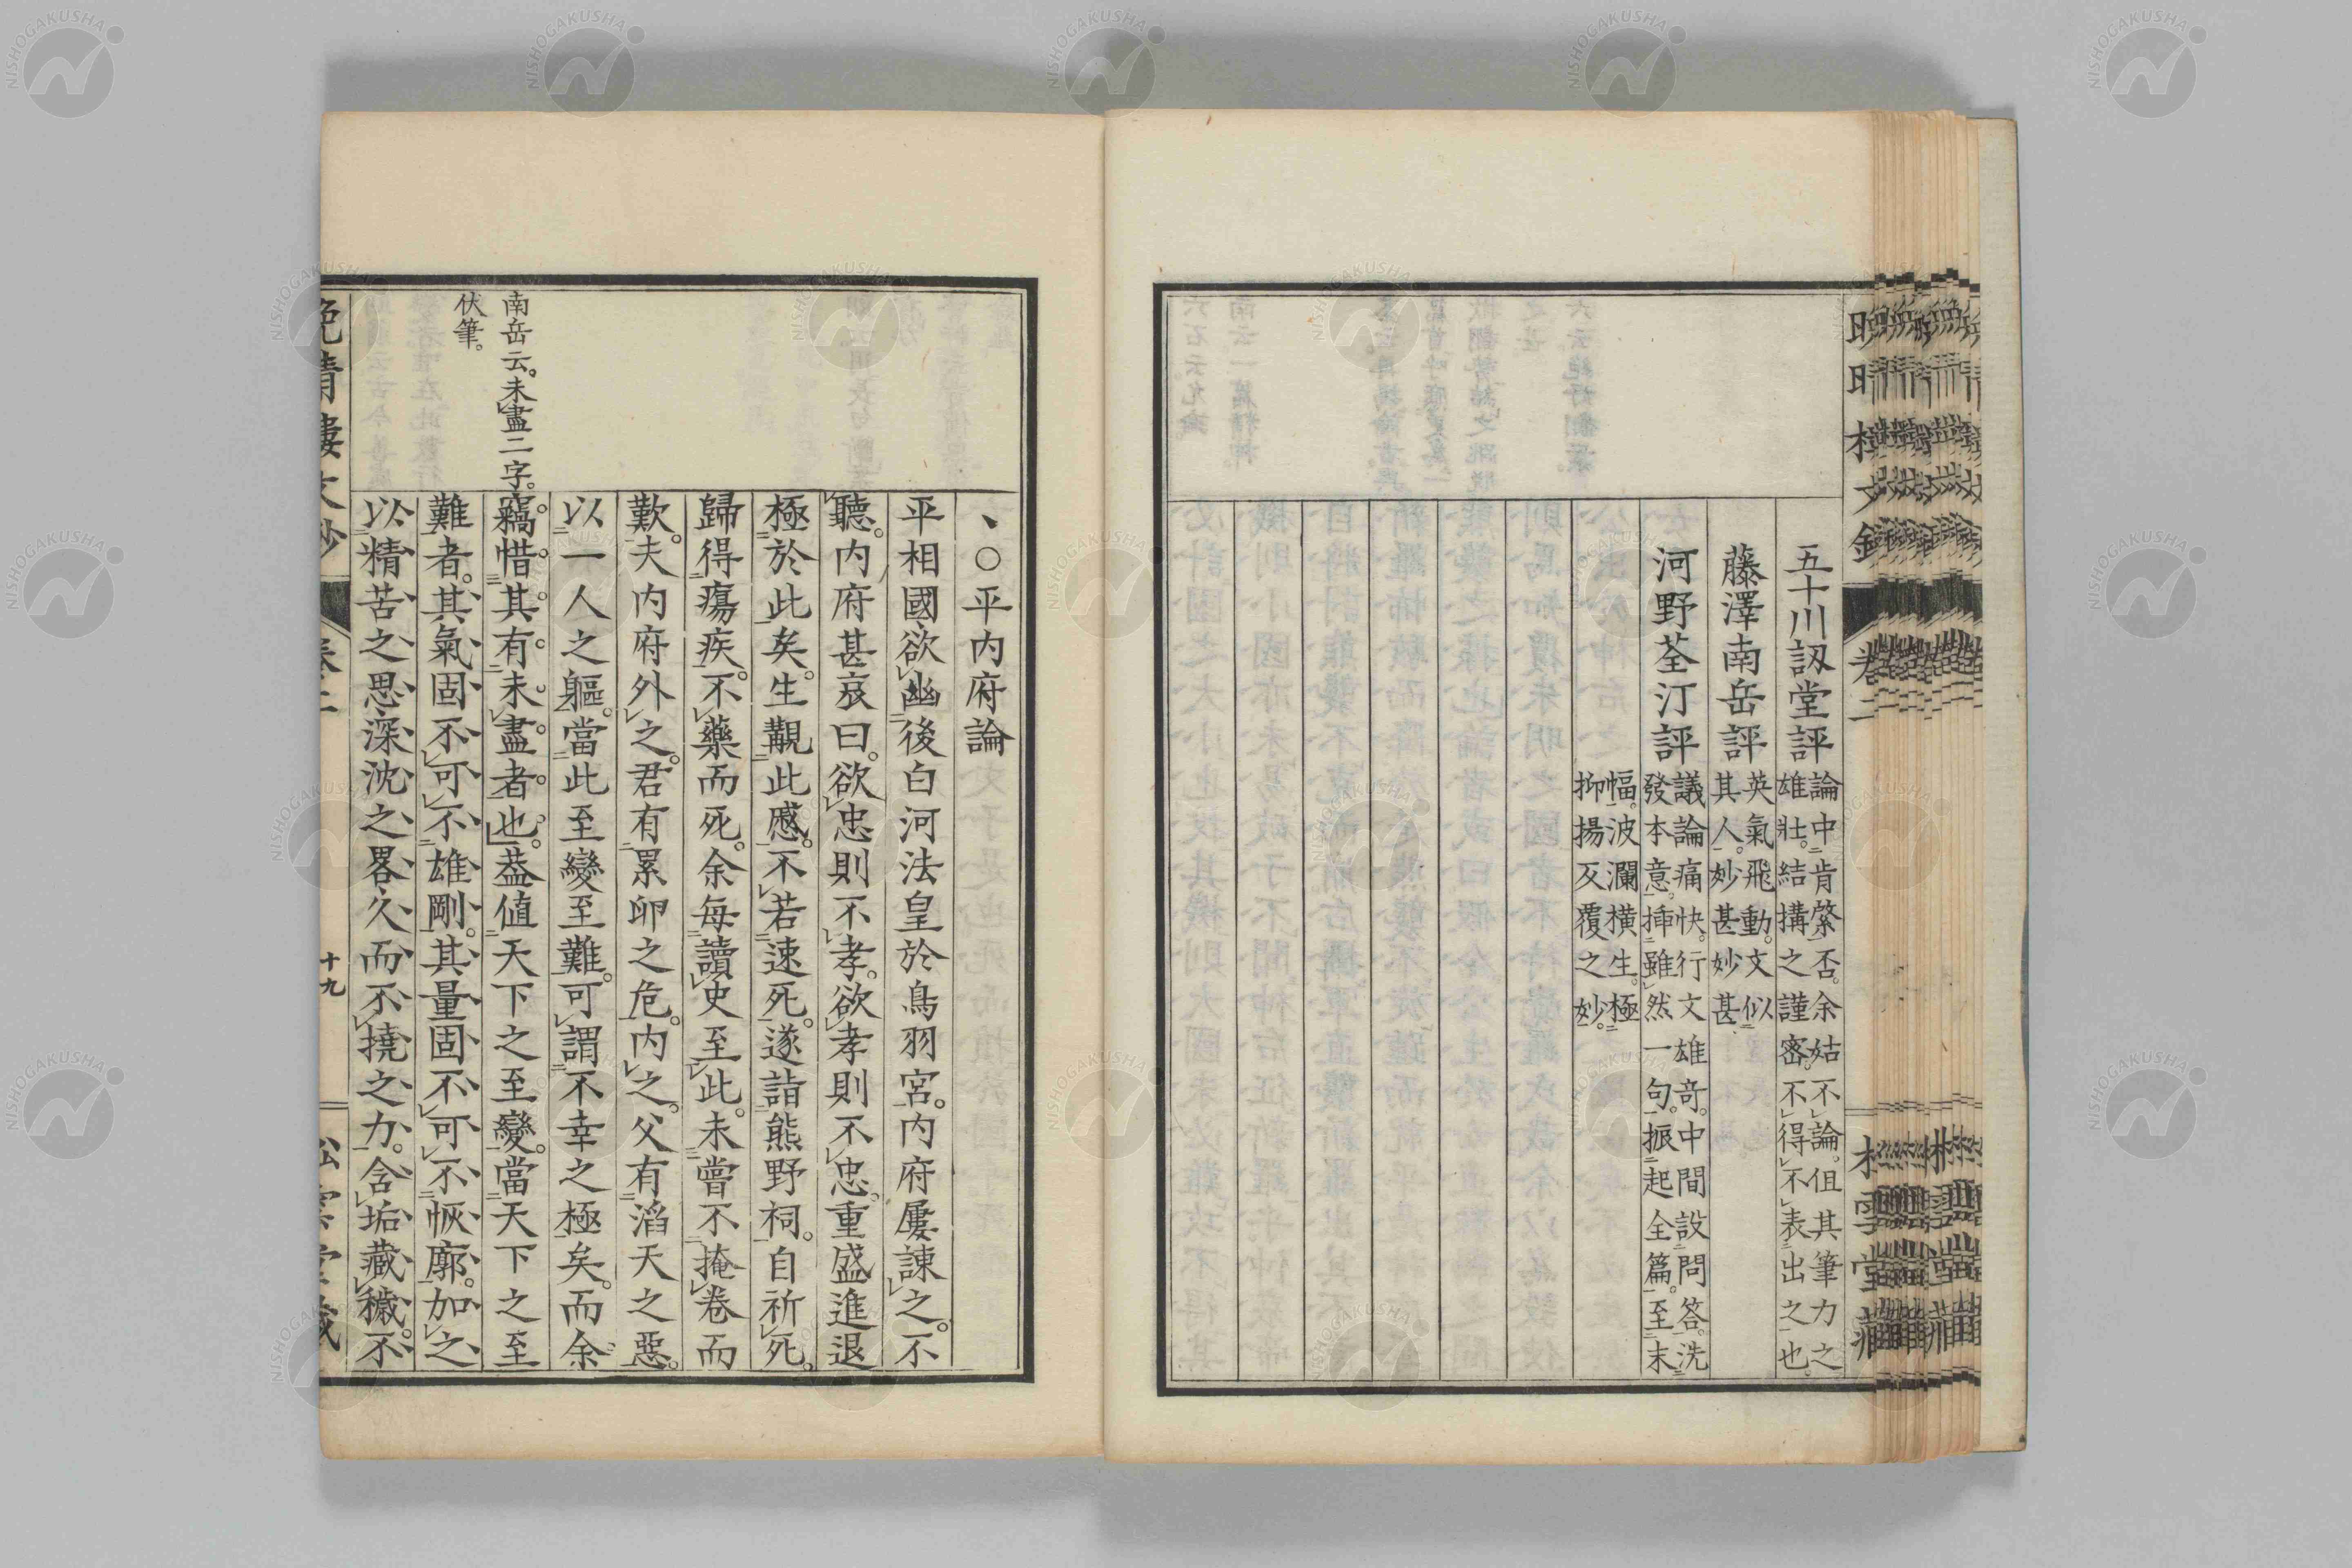 五十川訒堂評 論中肯綮否。余姑不論。但其筆力之
雄壯。結搆之謹密。不得不表出之也。
藤澤南岳評 英氣飛動。文似
其人。妙甚妙甚
河野荃汀評 議論痛快。行文雄奇。中間設問答。洗
發本意。揷雖然一句。振起全篇。至末
幅。波瀾橫生。極
抑揚反覆之妙。
卷二
、○平內府論
平相國欲幽後白河法皇於鳥羽宮。內府屢諫之。不
聽。內府甚哀曰。欲忠則不孝。欲孝則不忠。重盛進退
極於此矣。生覯此慼。不若速死。遂詣熊野祠。自祈死。
歸得瘍疾。不藥而死。余每讀史至此。未嘗不掩卷而
歎。夫內府外之。君有累卵之危。內之。父有滔天之惡。
以一人之軀。當此至變至難。可謂不幸之極矣。而余
竊惜其有未盡者也。葢值天下之至變。當天下之至
難者。其氣固不可不雄剛。其量固不可不恢廓。加之
以精苦之思深沈之畧久而不撓之力。含垢藏穢。不
南岳云。未盡二字。
伏筆。
晚晴樓文鈔
卷二
十九
松雲堂藏
NISHOGAKUSHA